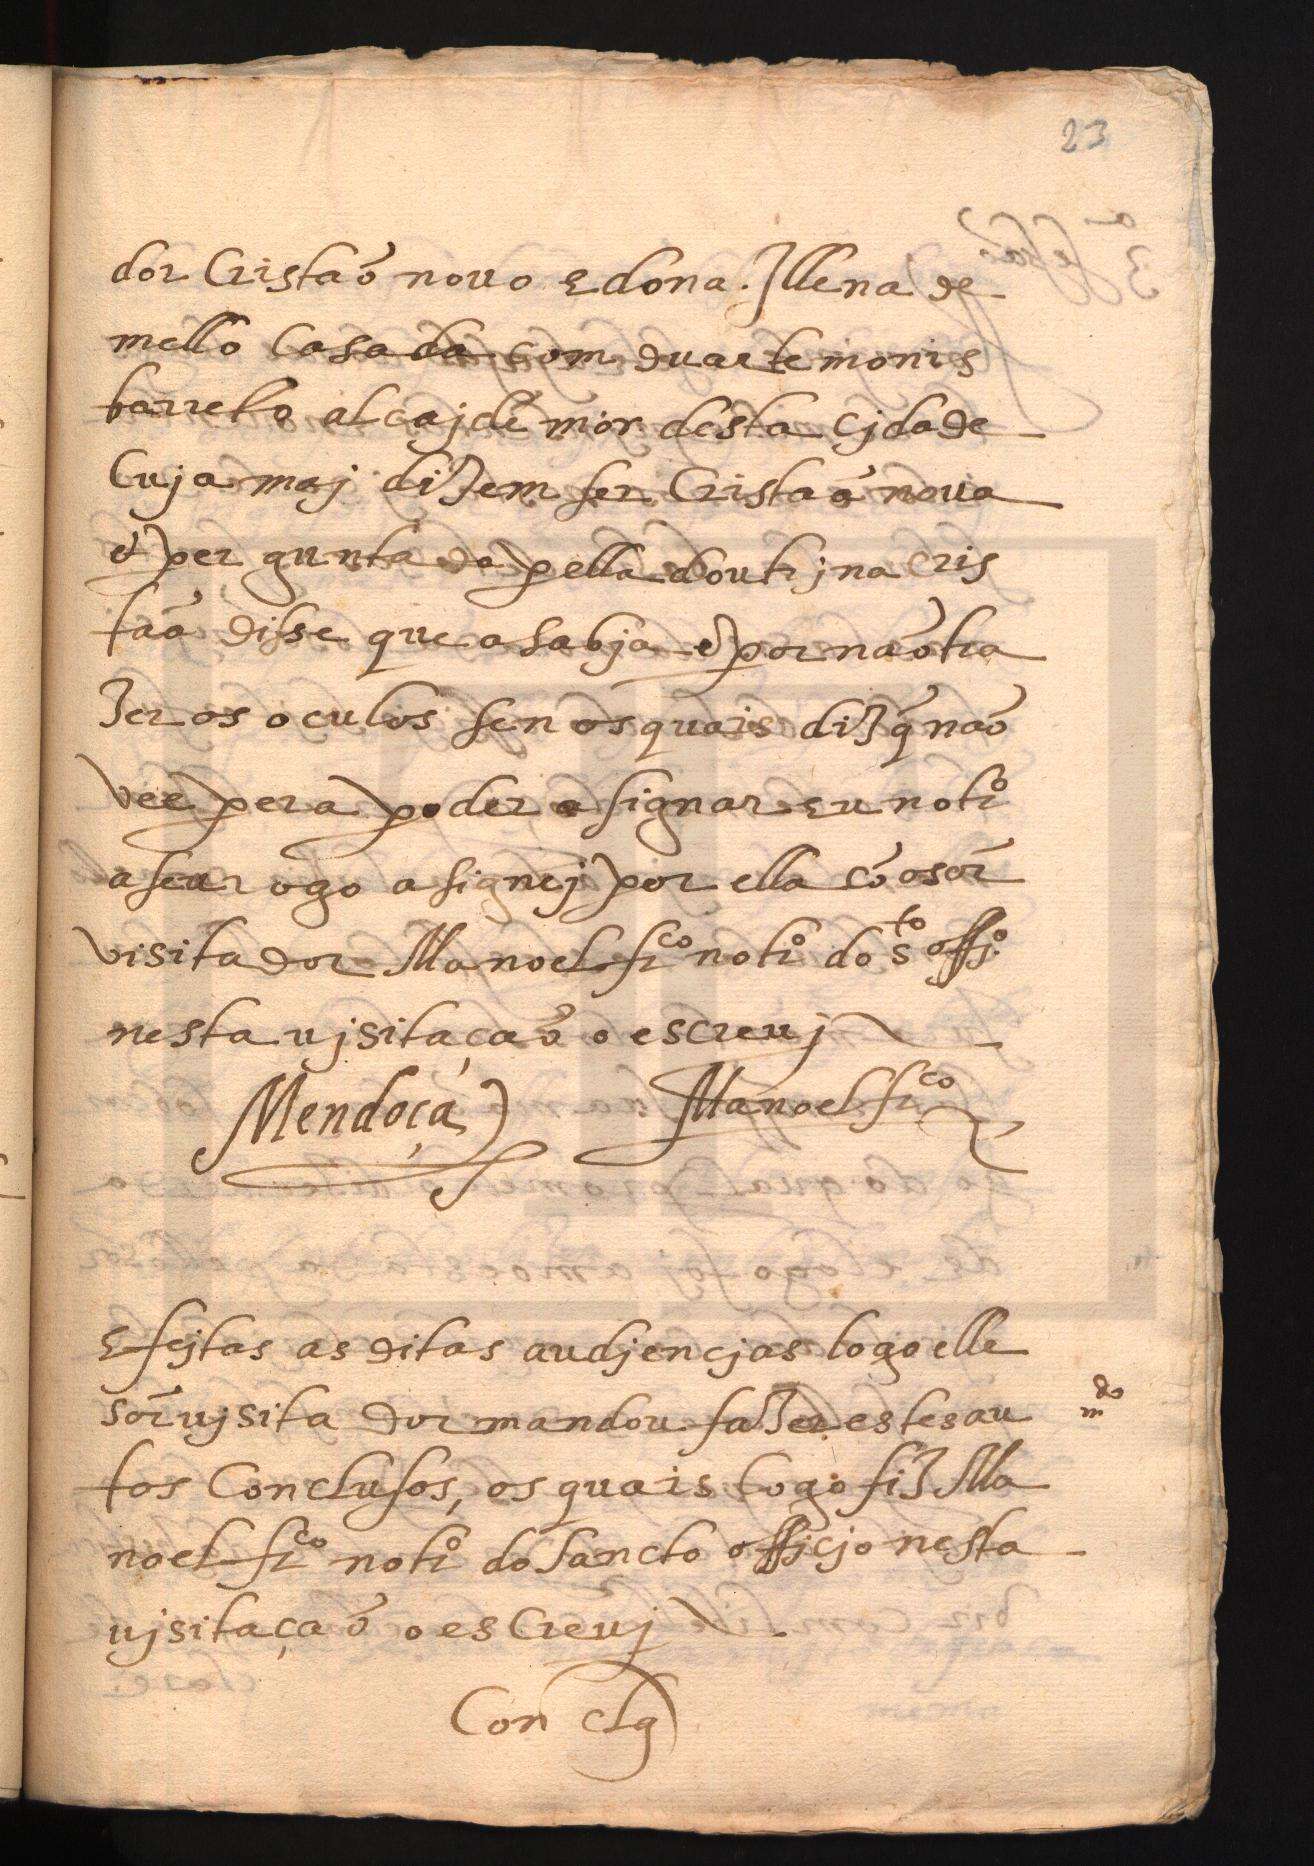 23
dor Cristaõ nouo e dona Illena de
mello Casada com duarte monis
barreto alcajde mór desta cjdade
Cuja maj dizem ser Cristaã noua
& per guntada pella doutrjna cris
taã disse que a sabja & por naõ tra
zer os oculos sen os quais diz q̃ naõ
vee pera poder asignar eu notro
a seu rogo asignej por ella cõ o sor̃
visitador Manoel frco notro do sto offjo
nesta vjsitaçaõ o escreuj
Mendoça Manoel frco
E fejtas as ditas audjencjas logo elle
sor̃ vjsitador mandou fazer estes au
do
m
tos Conclusos, os quais logo fiz Ma
noel frco notro do sancto offjcjo nesta
vjsitaçaõ o esCreuj
Conclq